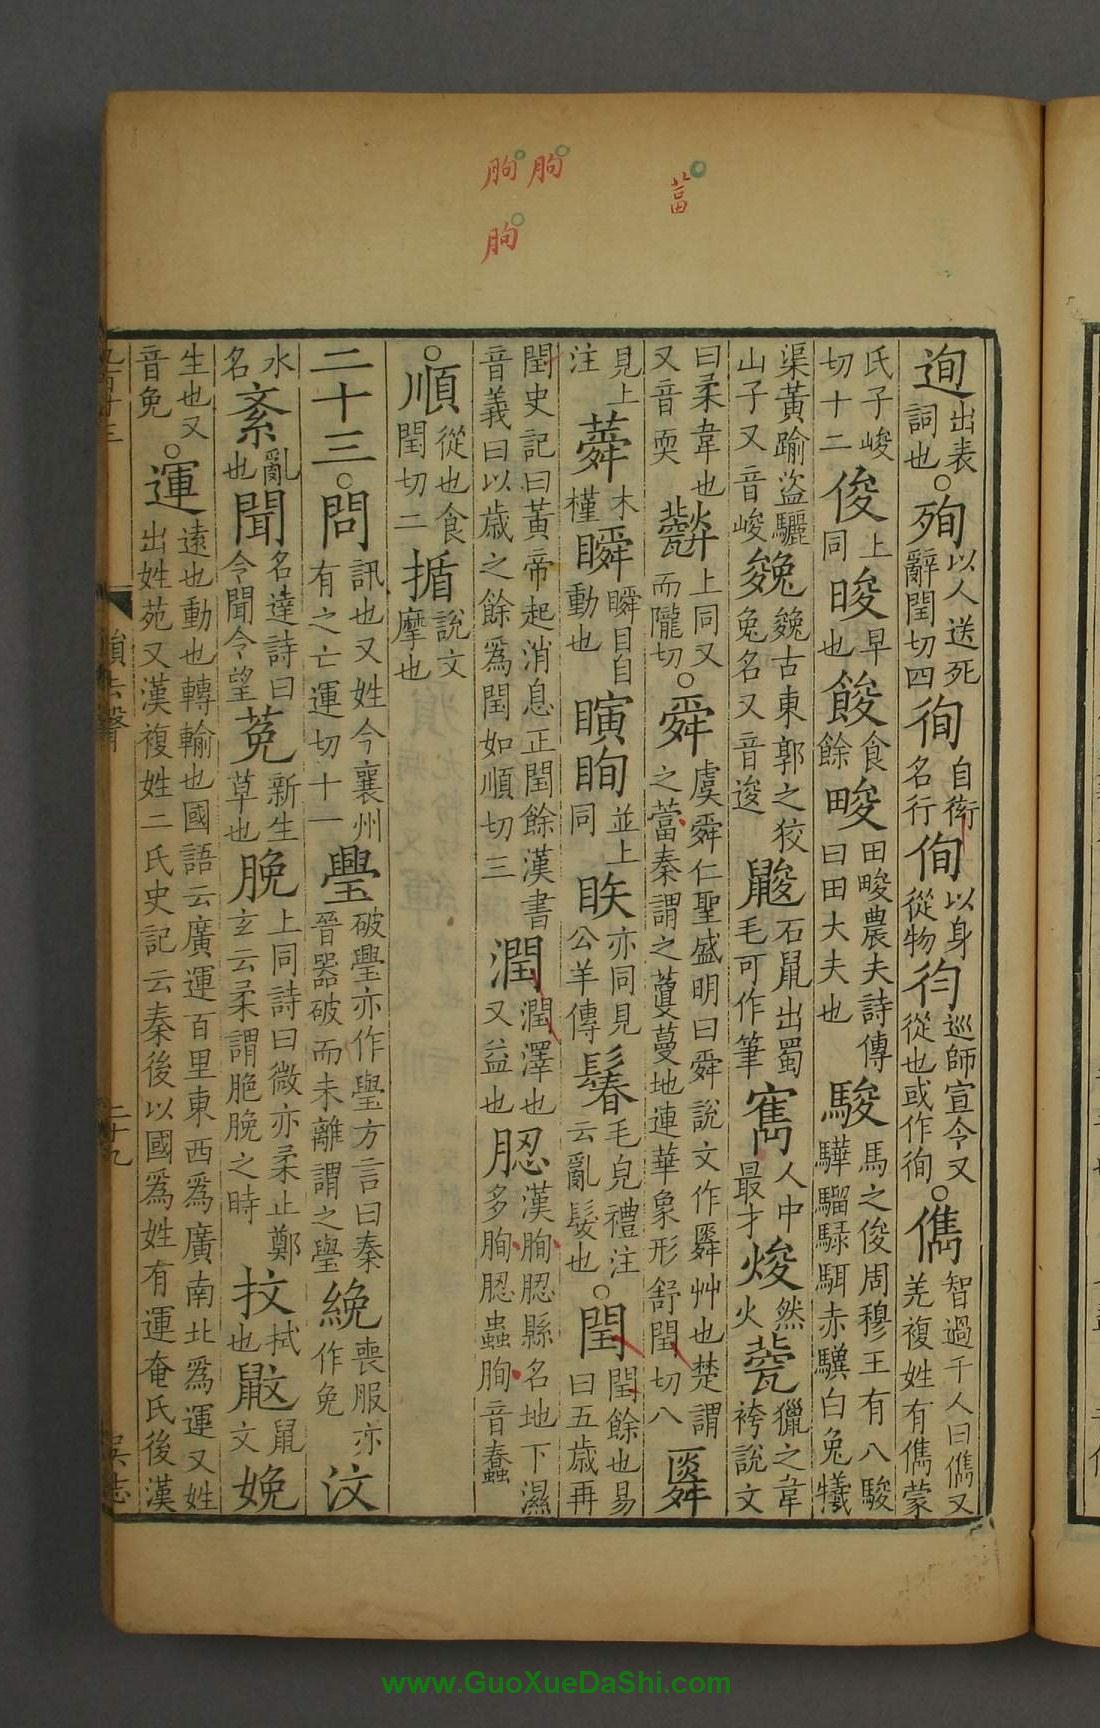 迿出表詞也○殉以人送死辭閏切四徇自衒名行侚以身從物㣔巡師宣令又從也或作徇○儁智過千人曰儁又羌複姓有儁蒙
氏子峻切十二俊上同晙早也餕食餘畯田畯農夫詩傳曰田大夫也駿馬之俊周穆王有八駿驊騮騄駬赤驥白兔犧
渠黃踰盗驪山子又音峻㕙㕙古東郭之狡兔名又音逡鼣石鼠出蜀毛可作筆寯人中最才焌然火㼱獵之韋袴說文
曰柔韋也又音耎上同又而隴切○舜虞舜仁聖盛明曰舜說文作䑞艸也楚謂之葍秦謂之藑蔓地連華象形舒閏切八䑞
見上注蕣木槿瞬瞬目自動也瞚眴並上同眣亦同見公羊傳鬊毛皃禮注云亂髮也○閏閏餘也易曰五歲再
閏史記曰黃帝起消息正閏餘漢書音義曰以歲之餘爲閏如順切三潤潤澤也又益也䏰漢朐䏰縣名地下濕多朐䏰蟲朐音蠢
○順從也食閏切二揗說文摩也
二十三○問訊也又姓今襄州有之亡運切十一璺破璺亦作璺方言曰秦晉器破而未離謂之璺絻喪服亦作免汶
水名紊亂也聞名達詩曰令聞令望莬新生草也脕上同詩曰薇亦柔止鄭玄云柔謂脆脕之時抆拭也鼤鼠文娩
生也又音免○運遠也動也轉輸也國語云廣運百里東西爲廣南北爲運又姓出姓苑又漢複姓二氏史記云秦後以國爲姓有運奄氏後漢
韻去聲 二十九 吴志
朐 朐 葍
朐
www.GuoXueDaShi.com